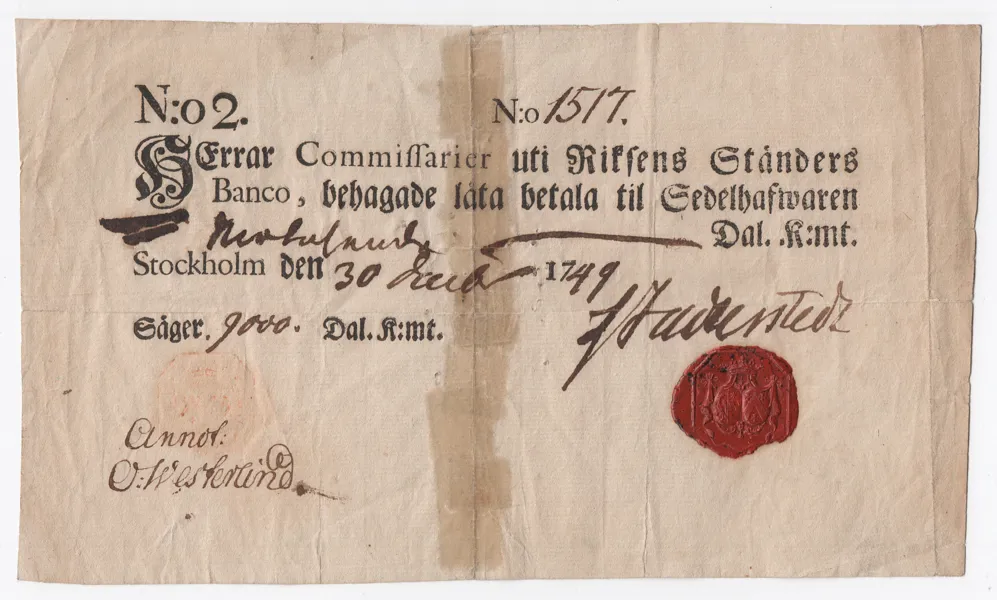 N:o 2. N:o 1517.
HErrar Commissarier uti Riksens Ständers
Banco, behagade låta betala til Sedelhafwaren
Dal. K:mt.
Stockholm den 30 1749
Säger. 9000. Dal. K:mt.
Annot:
O: Westerlind.